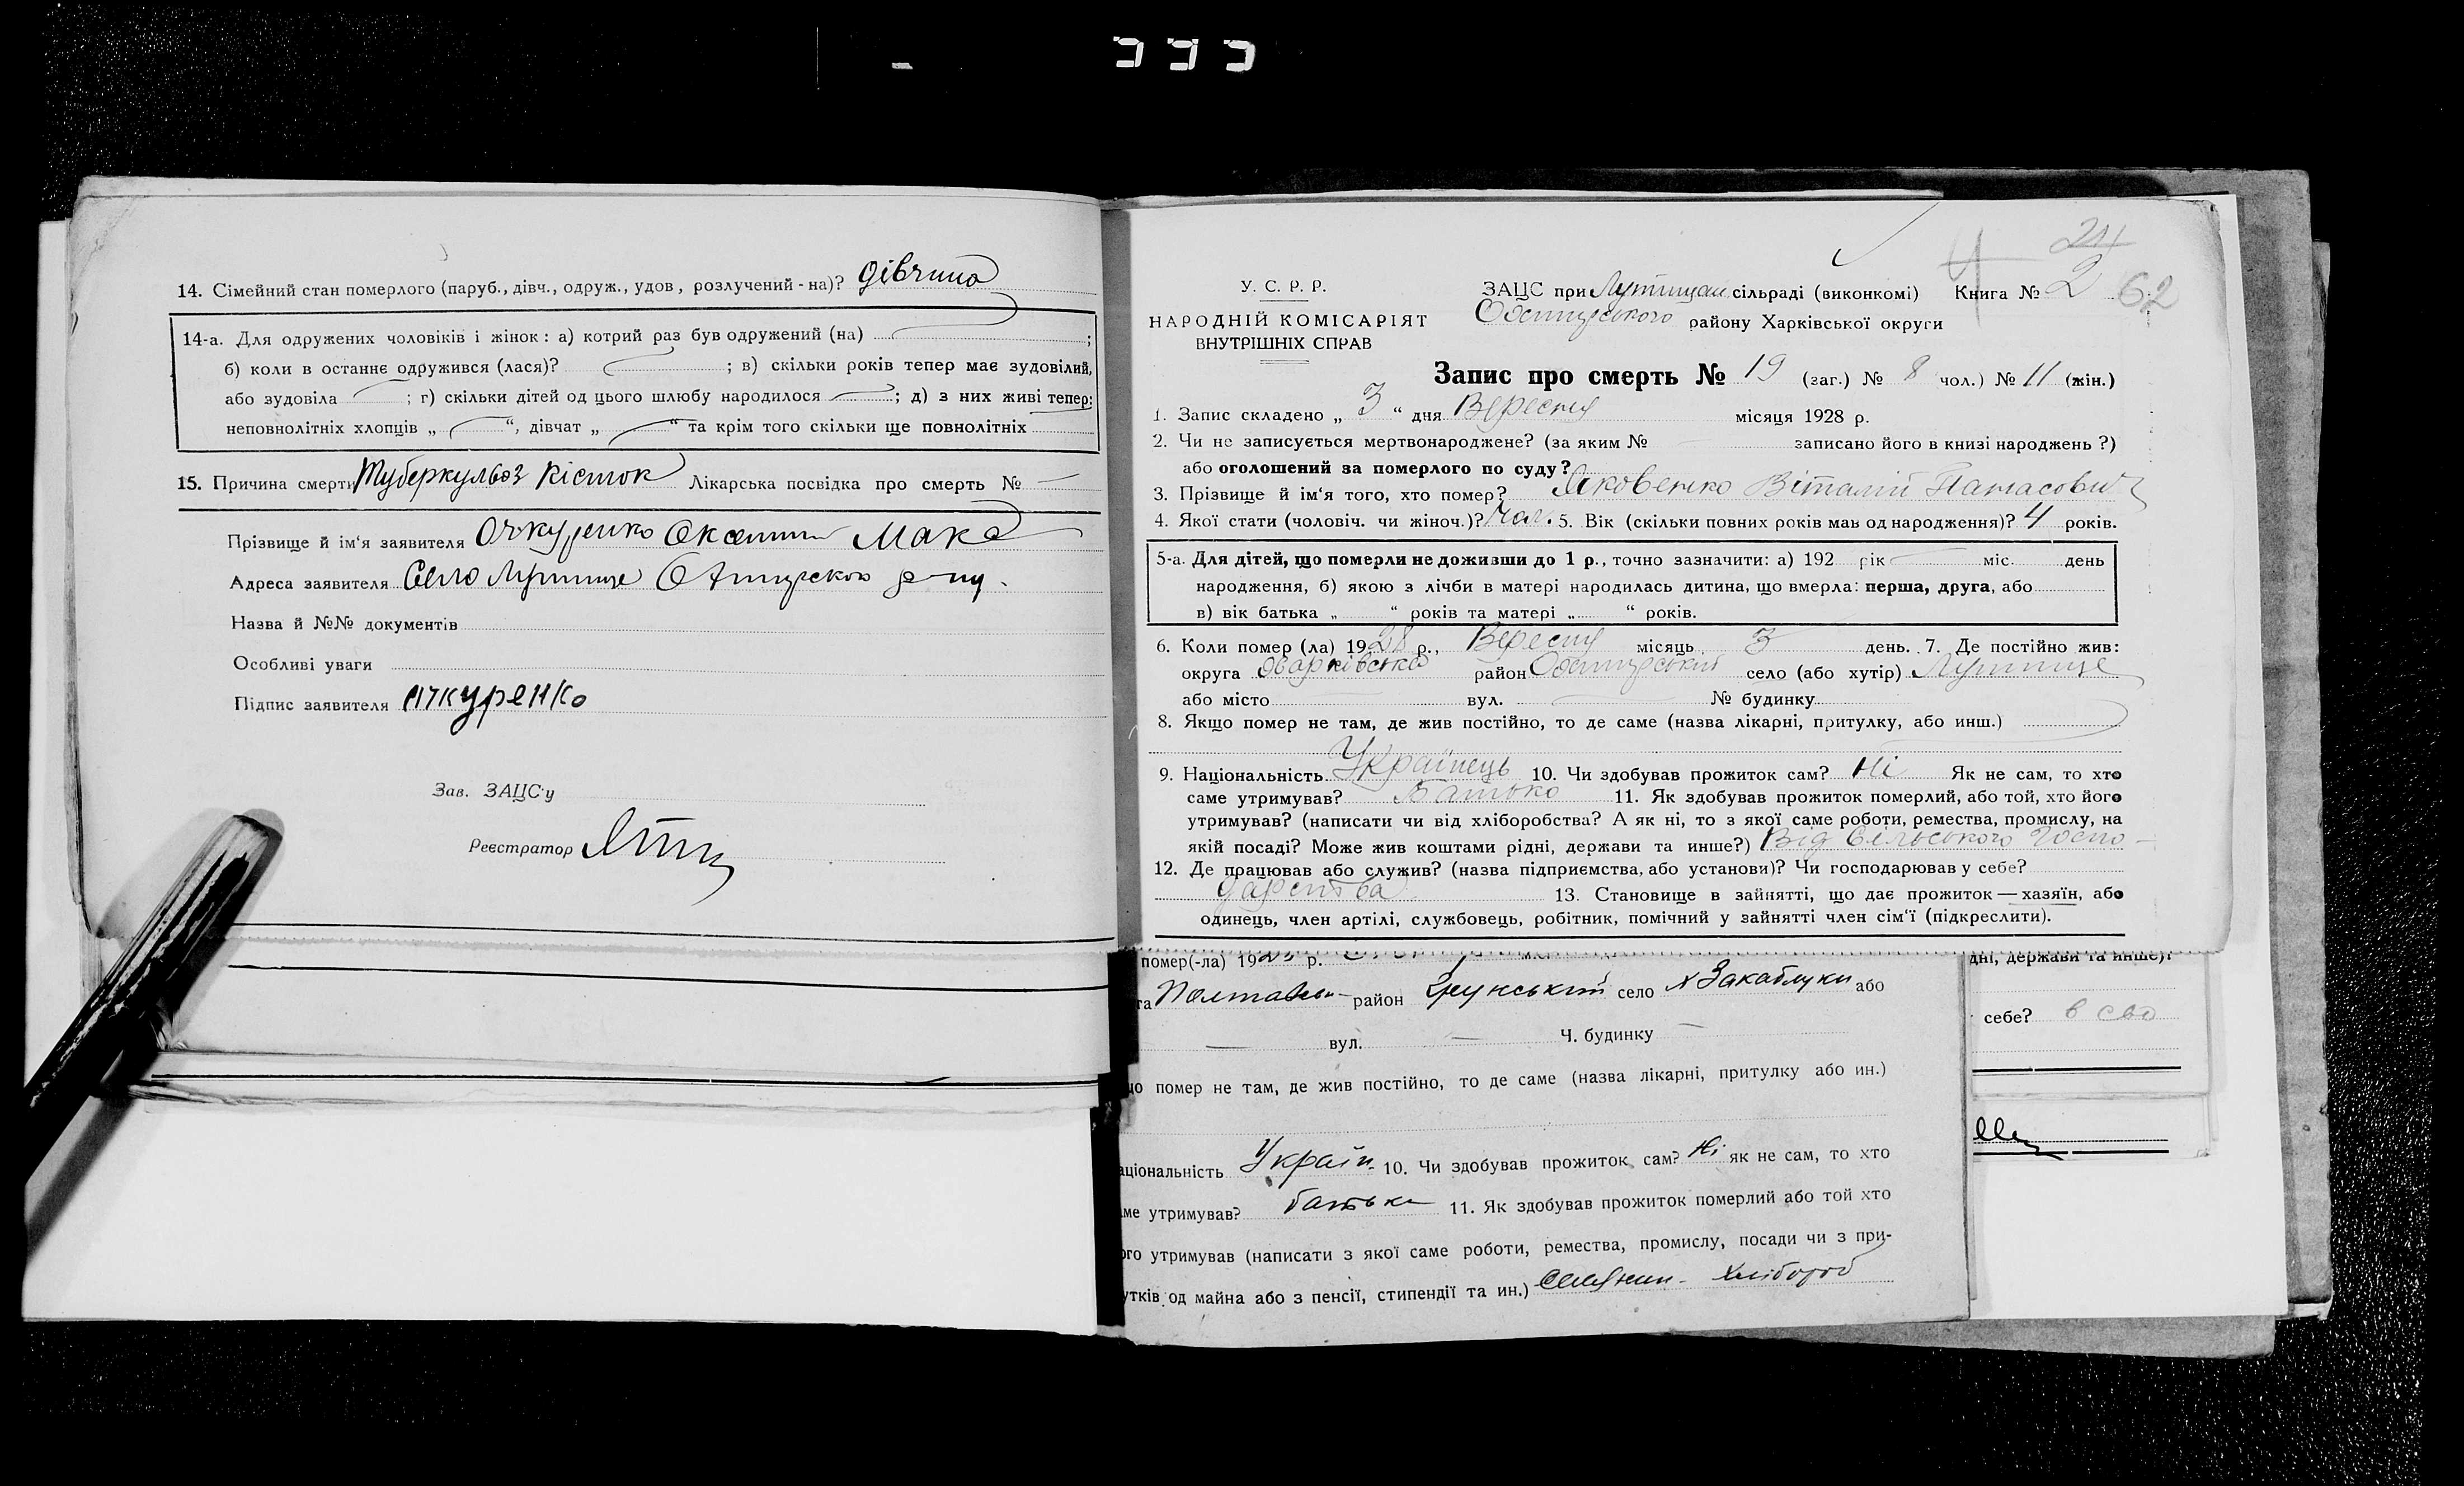 14. Сімейний стан померлого (паруб., дівч., одруж., удов, розлучений - на)? дівчина
14-а. Для одружених чоловіків і жінок: а) котрий раз був одружений (на) ;
б) коли в останнє одружився (лася)? ; в) скільки років тепер має зудовілий,
або зудовіла ; г) скільки дітей од цього шлюбу народилося ; д) з них живі тепер:
неповнолітніх хлопців „ “, дівчат „ “ та крім того скільки ще повнолітніх
15. Причина смерти Туберкульоз кісток Лікарська посвідка про смерть № —
Прізвище й ім‘я заявителя Очкуренко
Адреса заявителя Село
Назва й №№ документів
Особливі уваги
Підпис заявителя Ачкуренко
Зав. ЗАЦС‘у
Реєстратор
24
У. С. Р. Р.
НАРОДНІЙ КОМІСАРІЯТ
ВНУТРІШНІХ СПРАВ
ЗАЦС при сільраді (виконкомі) Книга № 2 62
району Харківської округи
Запис про смерть № 19 (заг.) № 8 чол.) № 11 (жін.)
1. Запис складено „ 3 “ дня Вересня місяця 1928 р.
2. Чи не записується мертвонароджене? (за яким № записано його в книзі народжень ?)
або оголошений за померлого по суду?
3. Прізвище й ім‘я того, хто помер? Яковенко Віталій Панасович
4. Якої стати (чоловіч. чи жіноч.)? Чол. 5. Вік (скільки повних років мав од народження)? 4 років.
5-а. Для дітей, що померли не доживши до 1 р., точно зазначити: а) 192 рік міс. день
народження, б) якою з лічби в матері народилась дитина, що вмерла: перша, друга, або
в) вік батька „ “ років та матері „ “ років.
6. Коли помер (ла) 1928 р., Вересня місяць 3 день. 7. Де постійно жив:
округа Харківська район село (або хутір)
або місто вул. № будинку
8. Якщо помер не там, де жив постійно, то де саме (назва лікарні, притулку, або инш.)
9. Національність Українець 10. Чи здобував прожиток сам? Ні Як не сам, то хто
саме утримував? Батько 11. Як здобував прожиток померлий, або той, хто його
утримував? (написати чи від хліборобства? А як ні, то з якої саме роботи, ремества, промислу, на
якій посаді? Може жив коштами рідні, держави та инше?) Від сільського госпо-
12. Де працював або служив? (назва підприємства, або установи)? Чи господарював у себе?
дарства 13. Становище в зайнятті, що дає прожиток — хазяїн, або
одинець, член артілі, службовець, робітник, помічний у зайнятті член сім‘ї (підкреслити).
помер(-ла) 19 р.
та район село х Закаблуки або
— вул. — Ч. будинку —
що помер не там, де жив постійно, то де саме (назва лікарні, притулку або ин.)
аціональність Україн. 10. Чи здобував прожиток сам? Ні як не сам, то хто
аме утримував? батько 11. Як здобував прожиток померлий або той хто
ого утримував (написати з якої саме роботи, ремества, промислу, посади чи з при-
утків од майна або з пенсії, стипендії та ин.) Селянин - хлібороб
дні, держави та инше)?
себе?